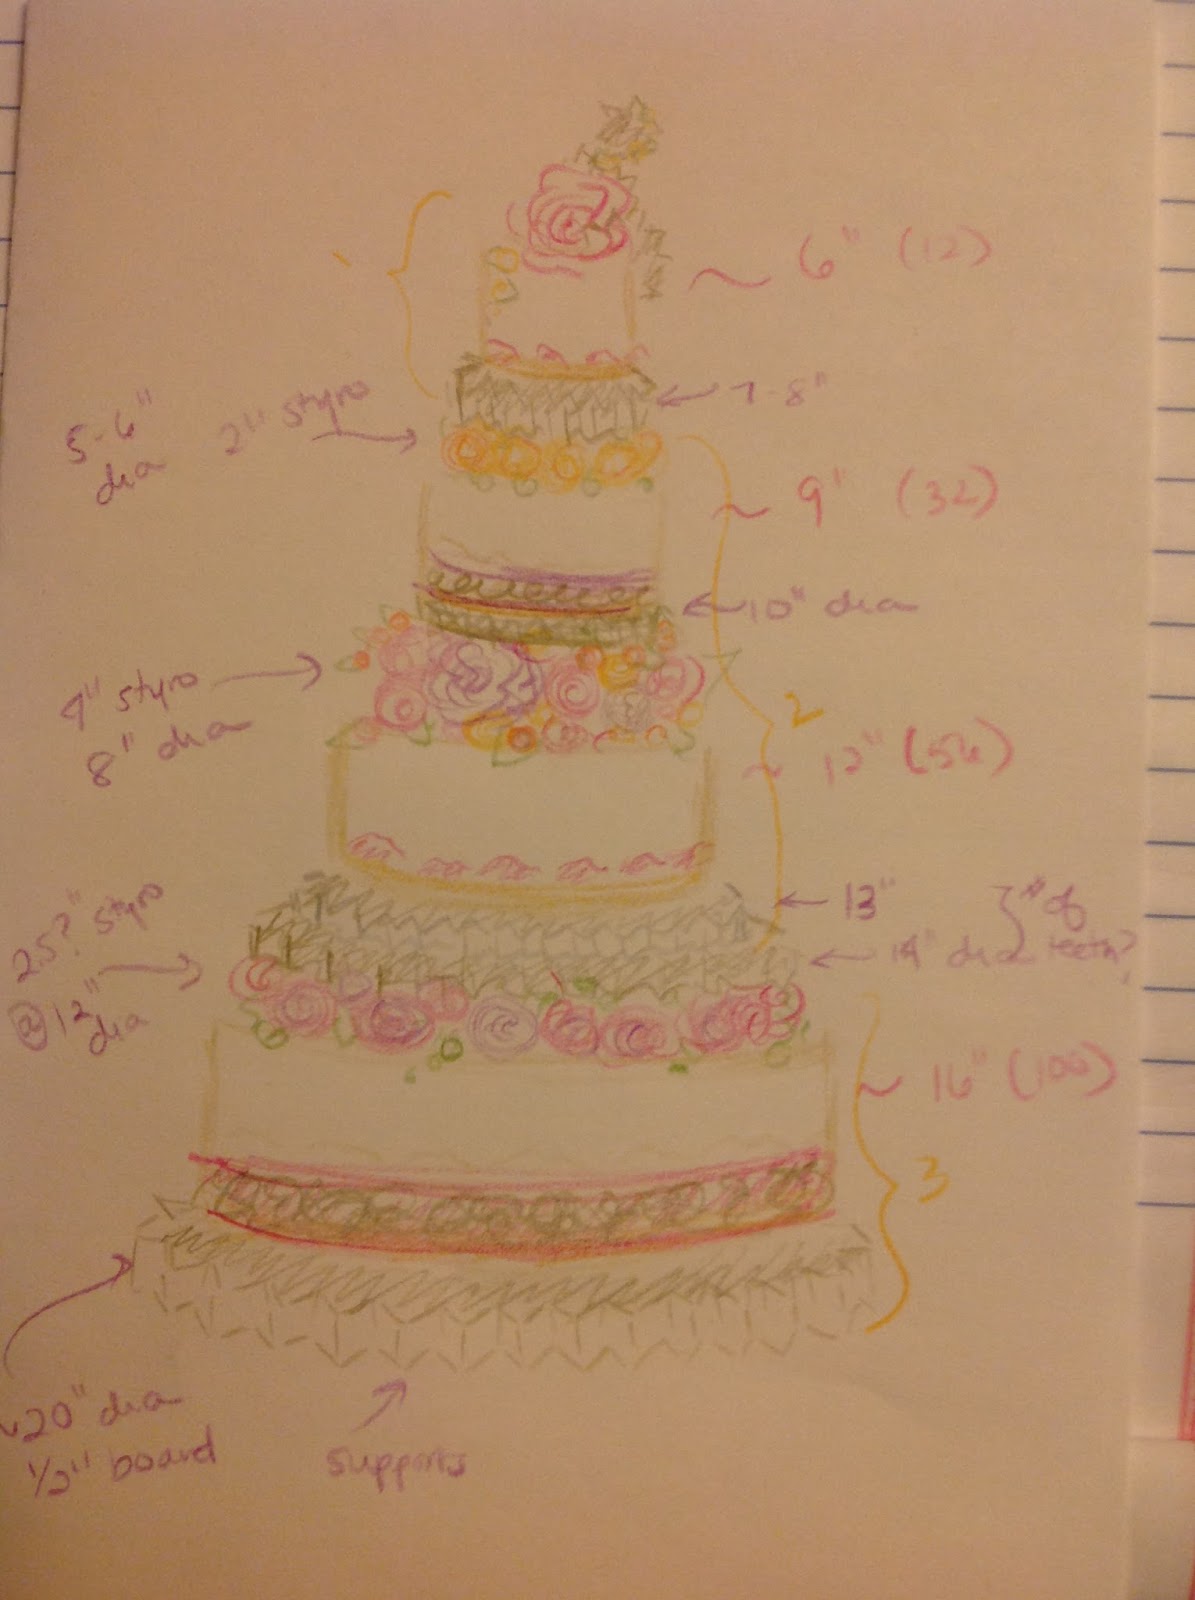 6" (12)
7-8"
5-6"
dia
2" styro
9' (32)
10" dia
4" styro
8" dia
2
12" (56)
13"
# of
teeth?
14" dia
2.5?" styro
@12"
dia
16" (100)
3
~20" dia
1/2" board
supports